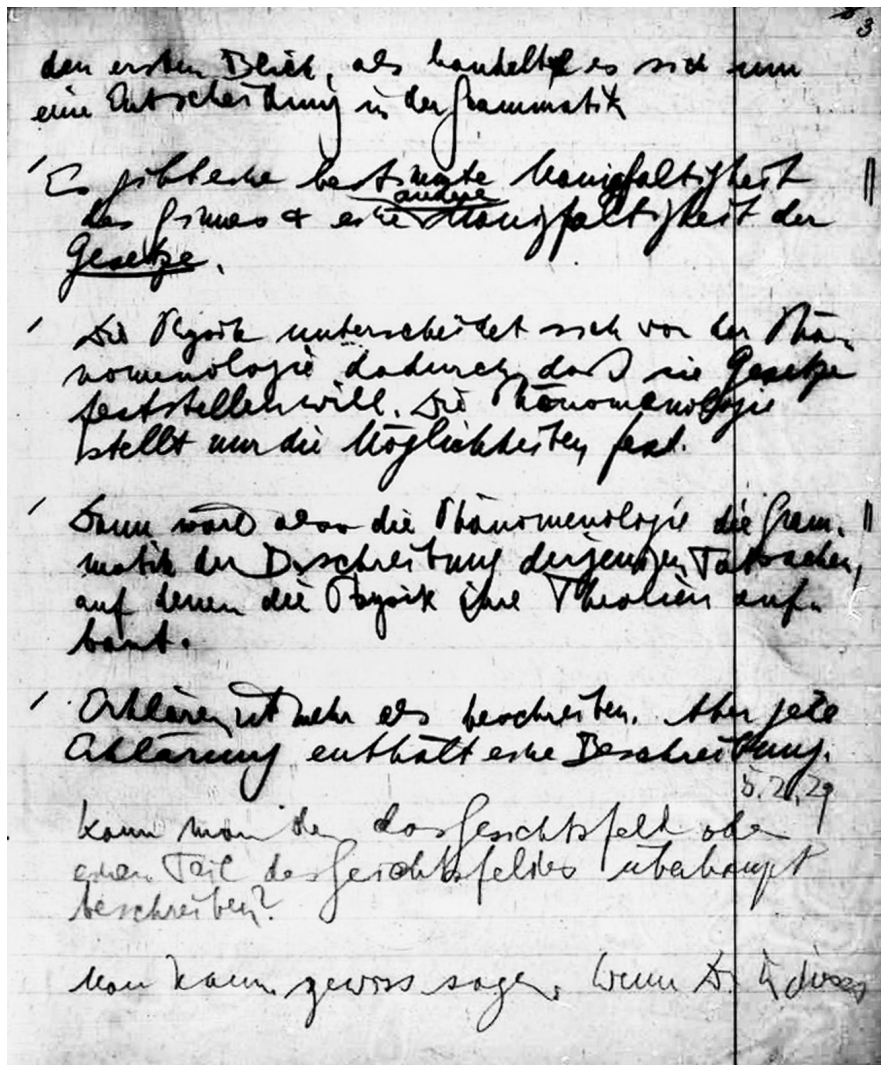 3
den ersten Blick, als handelte es sich um
eine Entscheidung in der Grammatik
Es gibt eine bestimmte Manigfaltigkeit
andere
des Sinnes & eine Manigfaltigkeit der
Gesetze.
Die Physik unterscheidet sich von der Phä-
nomenologie dadurch, daß sie Gesetze
feststellen will. Die Phänomenologie
stellt nur die Möglichkeiten fest.
Dann wäre also die Phänomenologie die Gram-
matik der Beschreibung derjenigen Tatsachen,
auf denen die Physik ihre Theorien auf-
baut.
Erklären ist mehr als beschreiben. Aber jede
Erklärung enthält eine Beschreibung.
5.2.29
Kann man den das Gesichtsfeld oder
einen Teil des Gesichtsfeldes überhaupt
beschreiben?
Man kann gewiss sagen, wenn